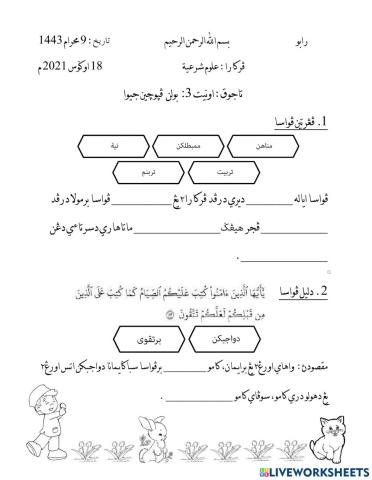 رابو
بسم الله الرحمن الرحيم
تاريخ : 9 محرام 1443
ڤركارا : علوم شرعية
18 اوݢوس 2021 م
تاجوق : اونيت 3: بولن ڤپوچين جيوا
1. ڤڠرتين ڤواسا
مناهن
ممبطلكن
نية
تربيت
تربنم
ڤواسا اياله ________ ديري درڤد ڤركارا٢ يڠ ________ ڤواسا برمولا درڤد
________ ڤجر هيڠݢ ________ ماتاهاري دسرتاءي دڠن
________ .
2. دليل ڤواسا
يَٰٓأَيُّهَا ٱلَّذِينَ ءَامَنُوا۟ كُتِبَ عَلَيْكُمُ ٱلصِّيَامُ كَمَا كُتِبَ عَلَى ٱلَّذِينَ
مِن قَبْلِكُمْ لَعَلَّكُمْ تَتَّقُونَ
دواجبكن
برتقوى
مقصودڽ : واهاي اورڠ٢ يڠ برايمان، كامو ________ برڤواسا سباݢايمانا دواجبكن اتس اورڠ٢
يڠ دهولو دري كامو، سوڤاي كامو ________ .
LIVEWORKSHEETS